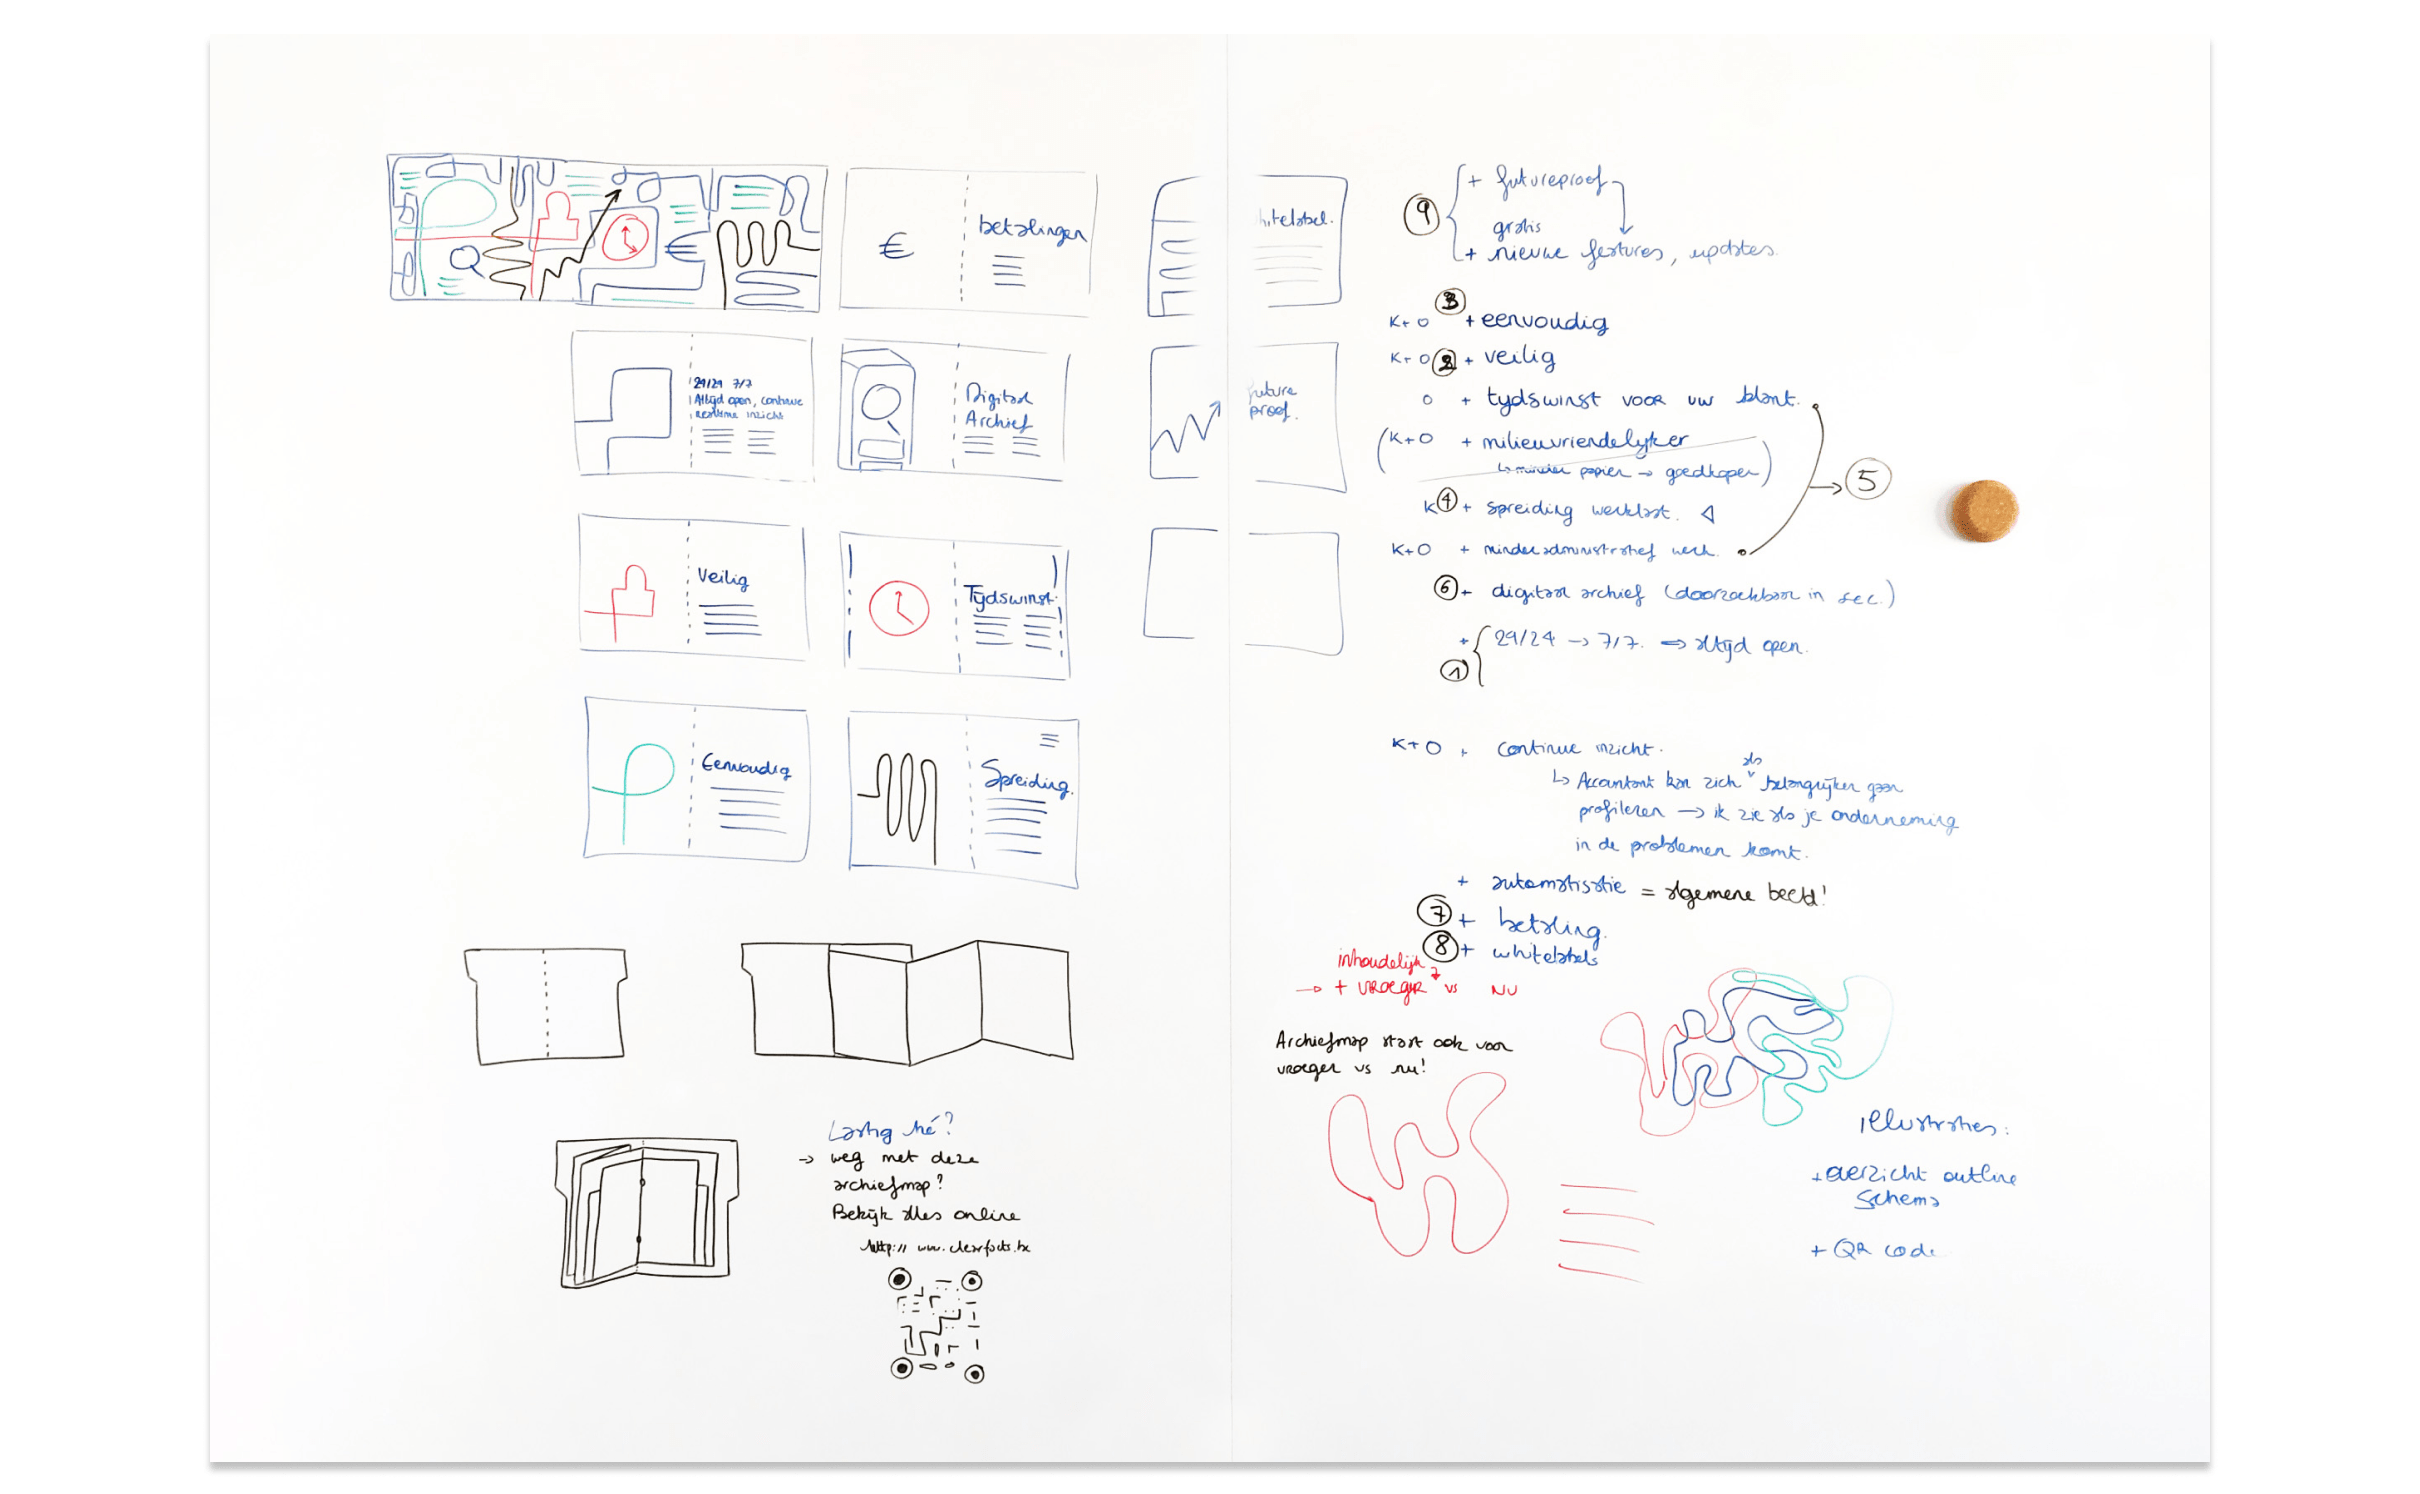 €
betalingen
hitelabel.
24/24 7/7
Altijd open, continue
realtime inzicht
Digitaal
Archief
future
proof.
Veilig
Tijdswinst.
Eenvoudig
Spreiding.
Lastig hé?
→ weg met deze
archiefmap?
Bekijk alles online
http:// www.clearfacts.be
9 + futureproof
gratis
+ nieuwe features, updates.
3
K+O + eenvoudig
K+O 2 + veilig
O + tijdswinst voor uw klant.
(K+O + milieuvriendelijker
↳ minder papier → goedkoper)
→ 5
K 4 + spreiding werklast.
K+O + minder administratief werk.
6 + digitaal archief (doorzoekbaar in sec.)
+ 24/24 → 7/7. ⇒ altijd open.
1
K+O + continue inzicht.
als
↳ Accountant kan zich belangrijker gaan
profileren → ik zie als je onderneming
in de problemen komt.
+ automatisatie = algemene beeld!
7 + betaling.
8 + whitelabels
inhoudelijk
→ + vroeger vs nu
Archiefmap staat ook voor
vroeger vs nu!
illustraties:
+ overzicht outline
schema
+ QR code